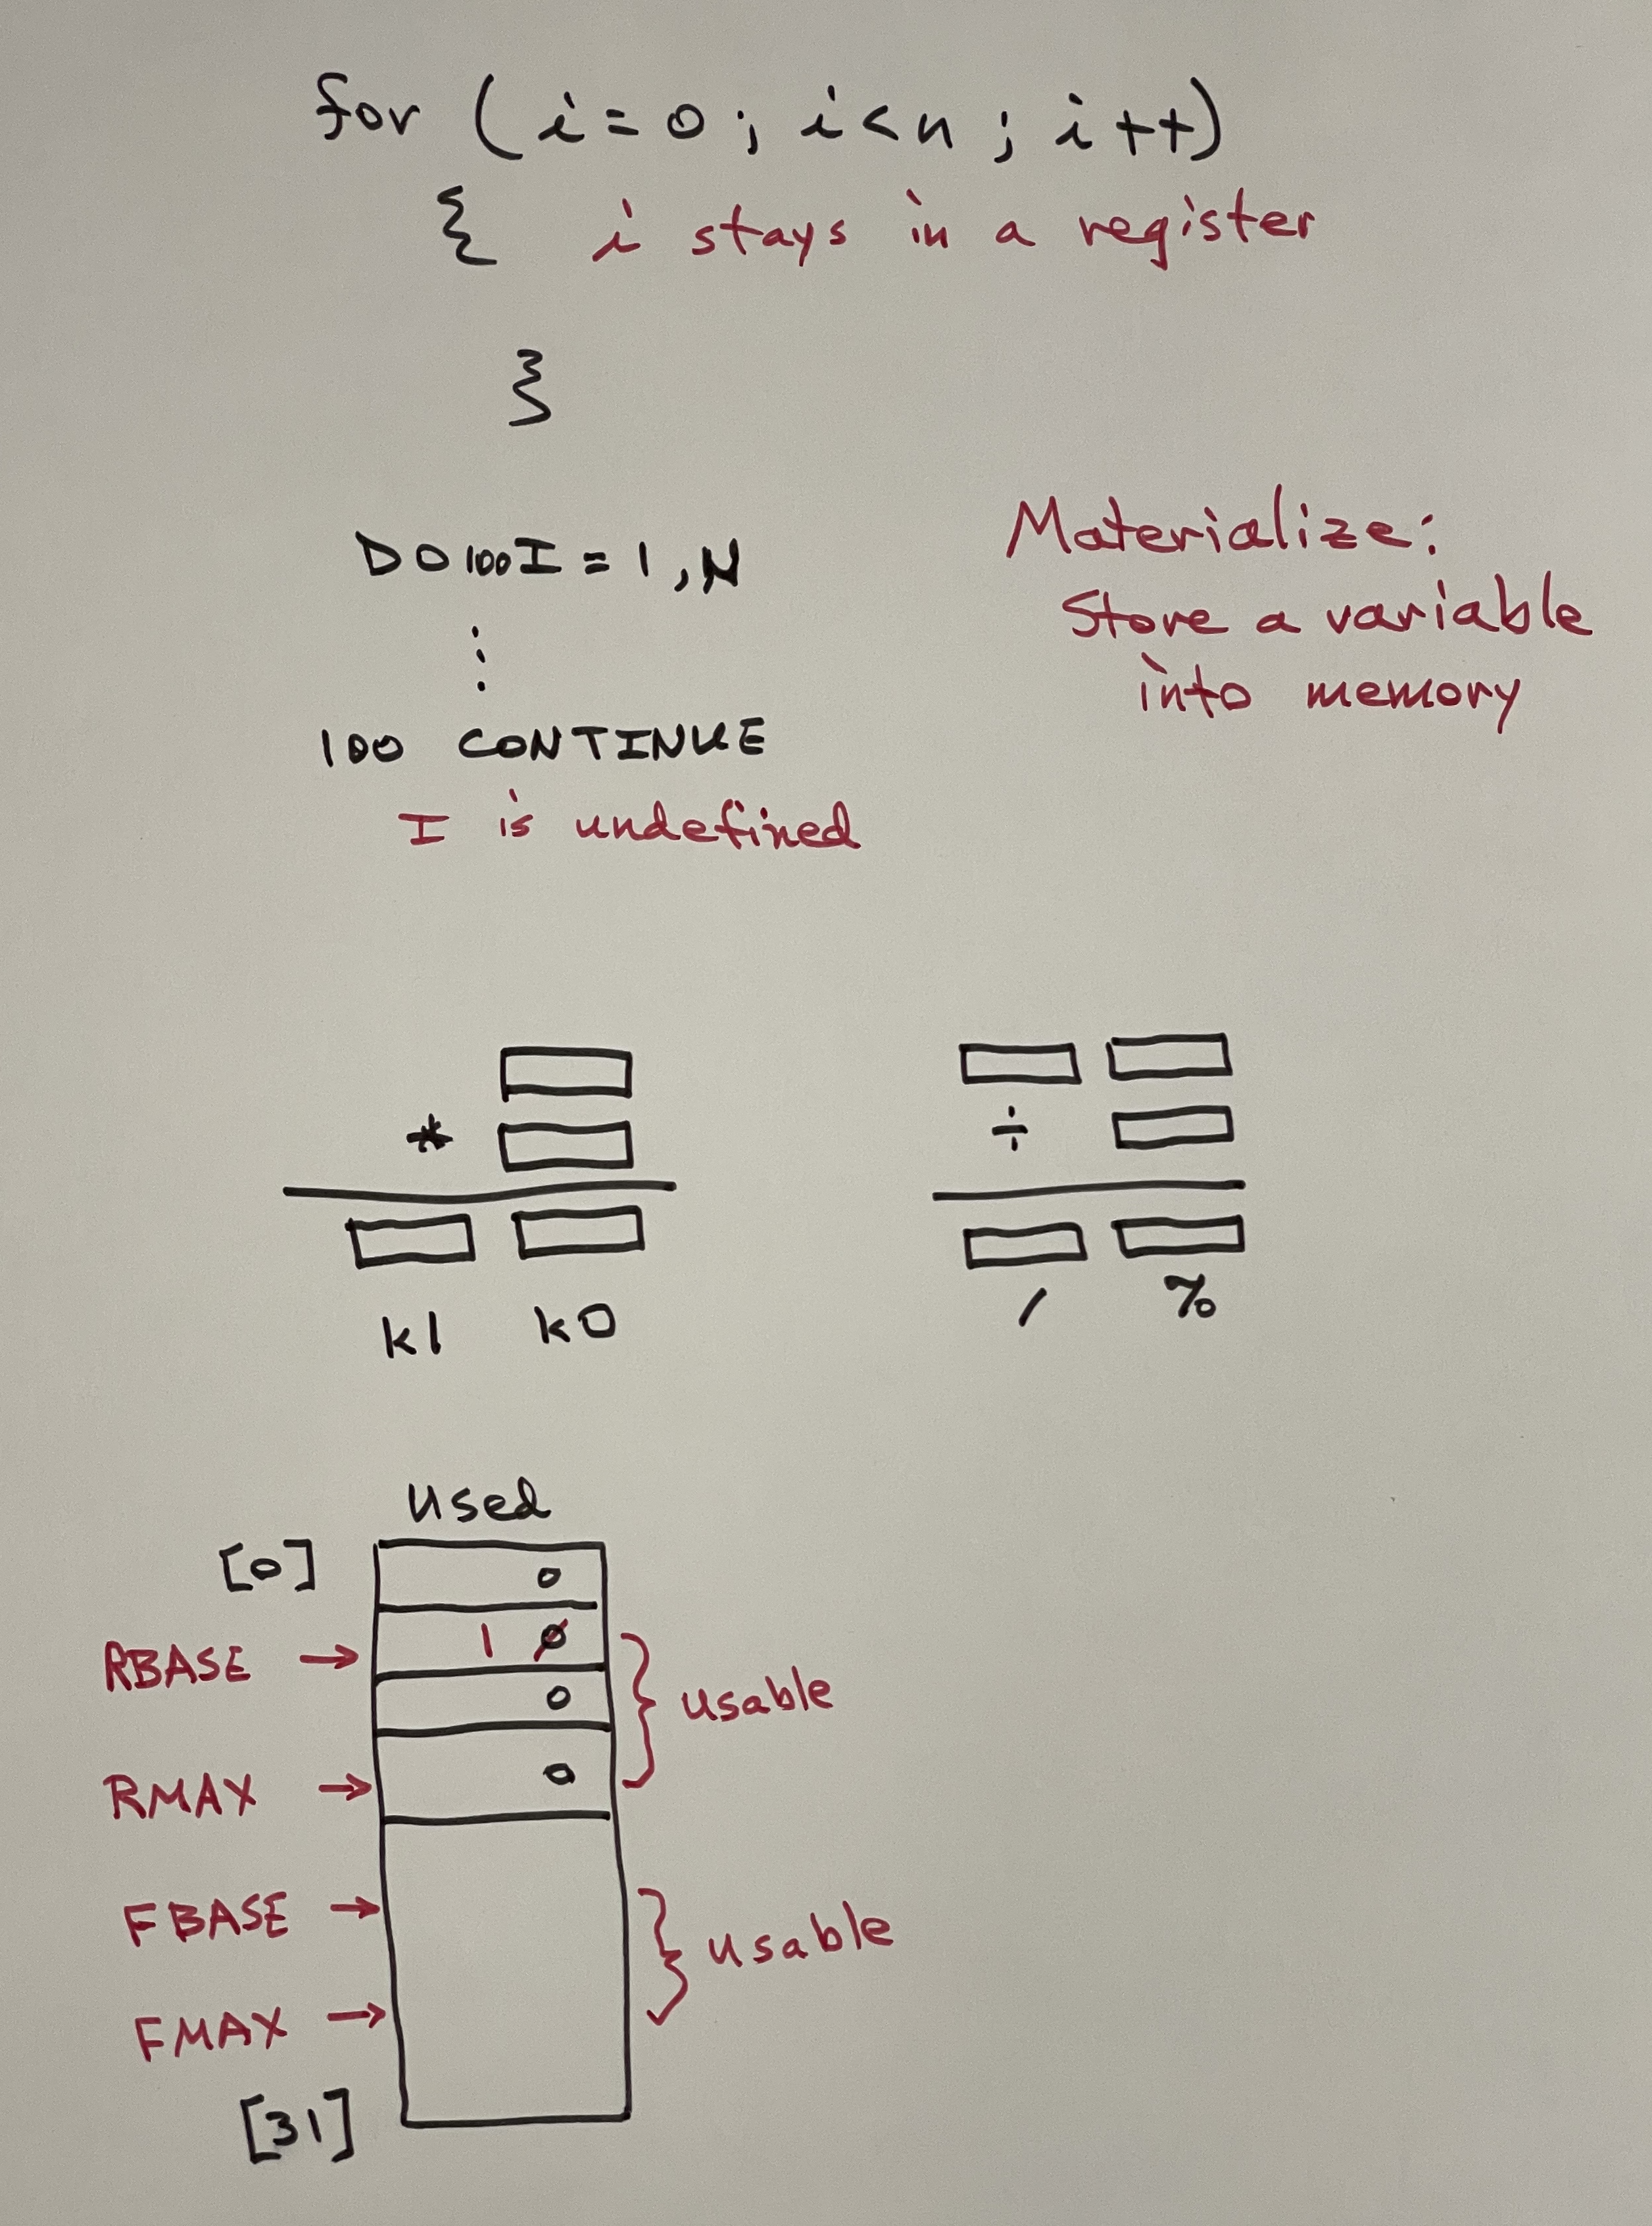 for (i=0; i<n; i++)
{ i stays in a register
}
DO 100 I = 1, N
⋮
100 CONTINUE
I is undefined
Materialize:
Store a variable
into memory
*
k1 k0
÷
/ %
used
[0] 0
RBASE → 1 0
0
usable
RMAX → 0
FBASE →
usable
FMAX →
[31]